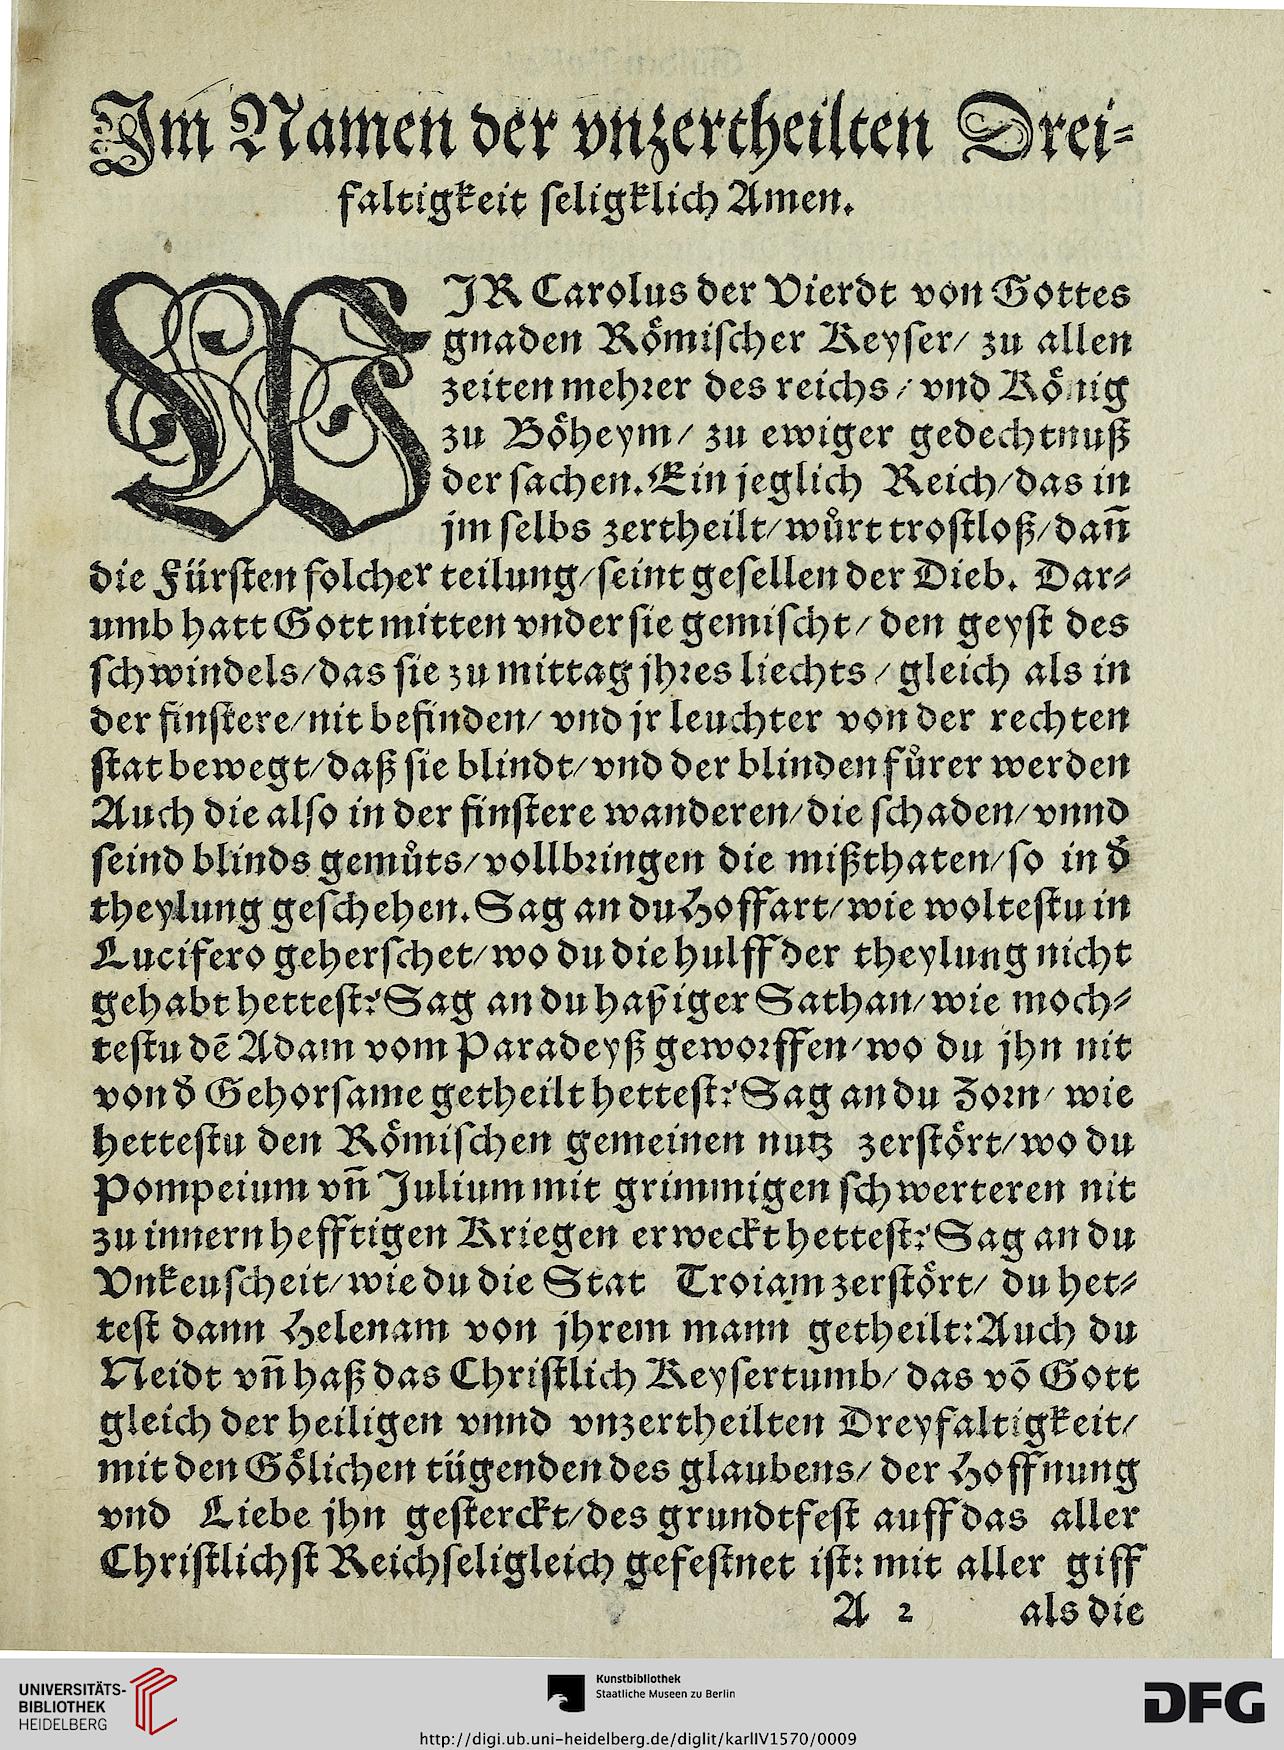 Im Namen der vnzertheilten Drei⸗
faltigkeit seligklich Amen.
WJR Carolus der Vierdt von Gottes
gnaden Roͤmischer Keyser/ zu allen
zeiten mehꝛer des reichs/ vnd Koͤnig
zu Boͤheym/ zu ewiger gedechtnuß
der sachen. Ein jeglich Reich/ das in
jm selbs zertheilt/ wuͤrt trostloß/ dañ
die Fürsten solcher teilung/ seint gesellen der Dieb. Dar⸗
umb hatt Gott mitten vnder sie gemischt/ den geyst des
schwindels/ das sie zu mittag jhꝛes liechts/ gleich als in
der finstere/ nit befinden/ vnd jr leuchter von der rechten
stat bewegt/ daß sie blindt/ vnd der blinden fuͤrer werden
Auch die also in der finstere wanderen/ die schaden/ vnnd
seind blinds gemuͤts/ vollbꝛingen die mißthaten/ so in d̕
theylung geschehen. Sag an du Hoffart/ wie woltestu in
Lucifero geherschet/ wo du die hulff der theylung nicht
gehabt hettest? Sag an du haßiger Sathan/ wie moch⸗
testu dẽ Adam vom Paradeyß gewoꝛffen/ wo du jhn nit
von d̕ Gehorsame getheilt hettest? Sag an du Zoꝛn/ wie
hettestu den Roͤmischen gemeinen nutz zerstoͤrt/ wo du
Pompeium vñ Julium mit grimmigen schwerteren nit
zu innern hefftigen Kriegen erweckt hettest? Sag an du
Vnkeuscheit/ wie du die Stat Troiam zerstoͤrt/ du het⸗
test dann Helenam von jhrem mann getheilt: Auch du
Neidt vñ haß das Christlich Keysertumb/ das võ Gott
gleich der heiligen vnnd vnzertheilten Dreyfaltigkeit/
mit den Goͤlichen tügenden des glaubens/ der Hoffnung
vnd Liebe jhn gesterckt/ des grundtfest auff das aller
Christlichst Reich seligleich gefestnet ist: mit aller giff
A 2 als die
UNIVERSITÄTS-
BIBLIOTHEK
HEIDELBERG
Kunstbibliothek
Staatliche Museen zu Berlin
DFG
http://digi.ub.uni-heidelberg.de/diglit/karlIV1570/0009